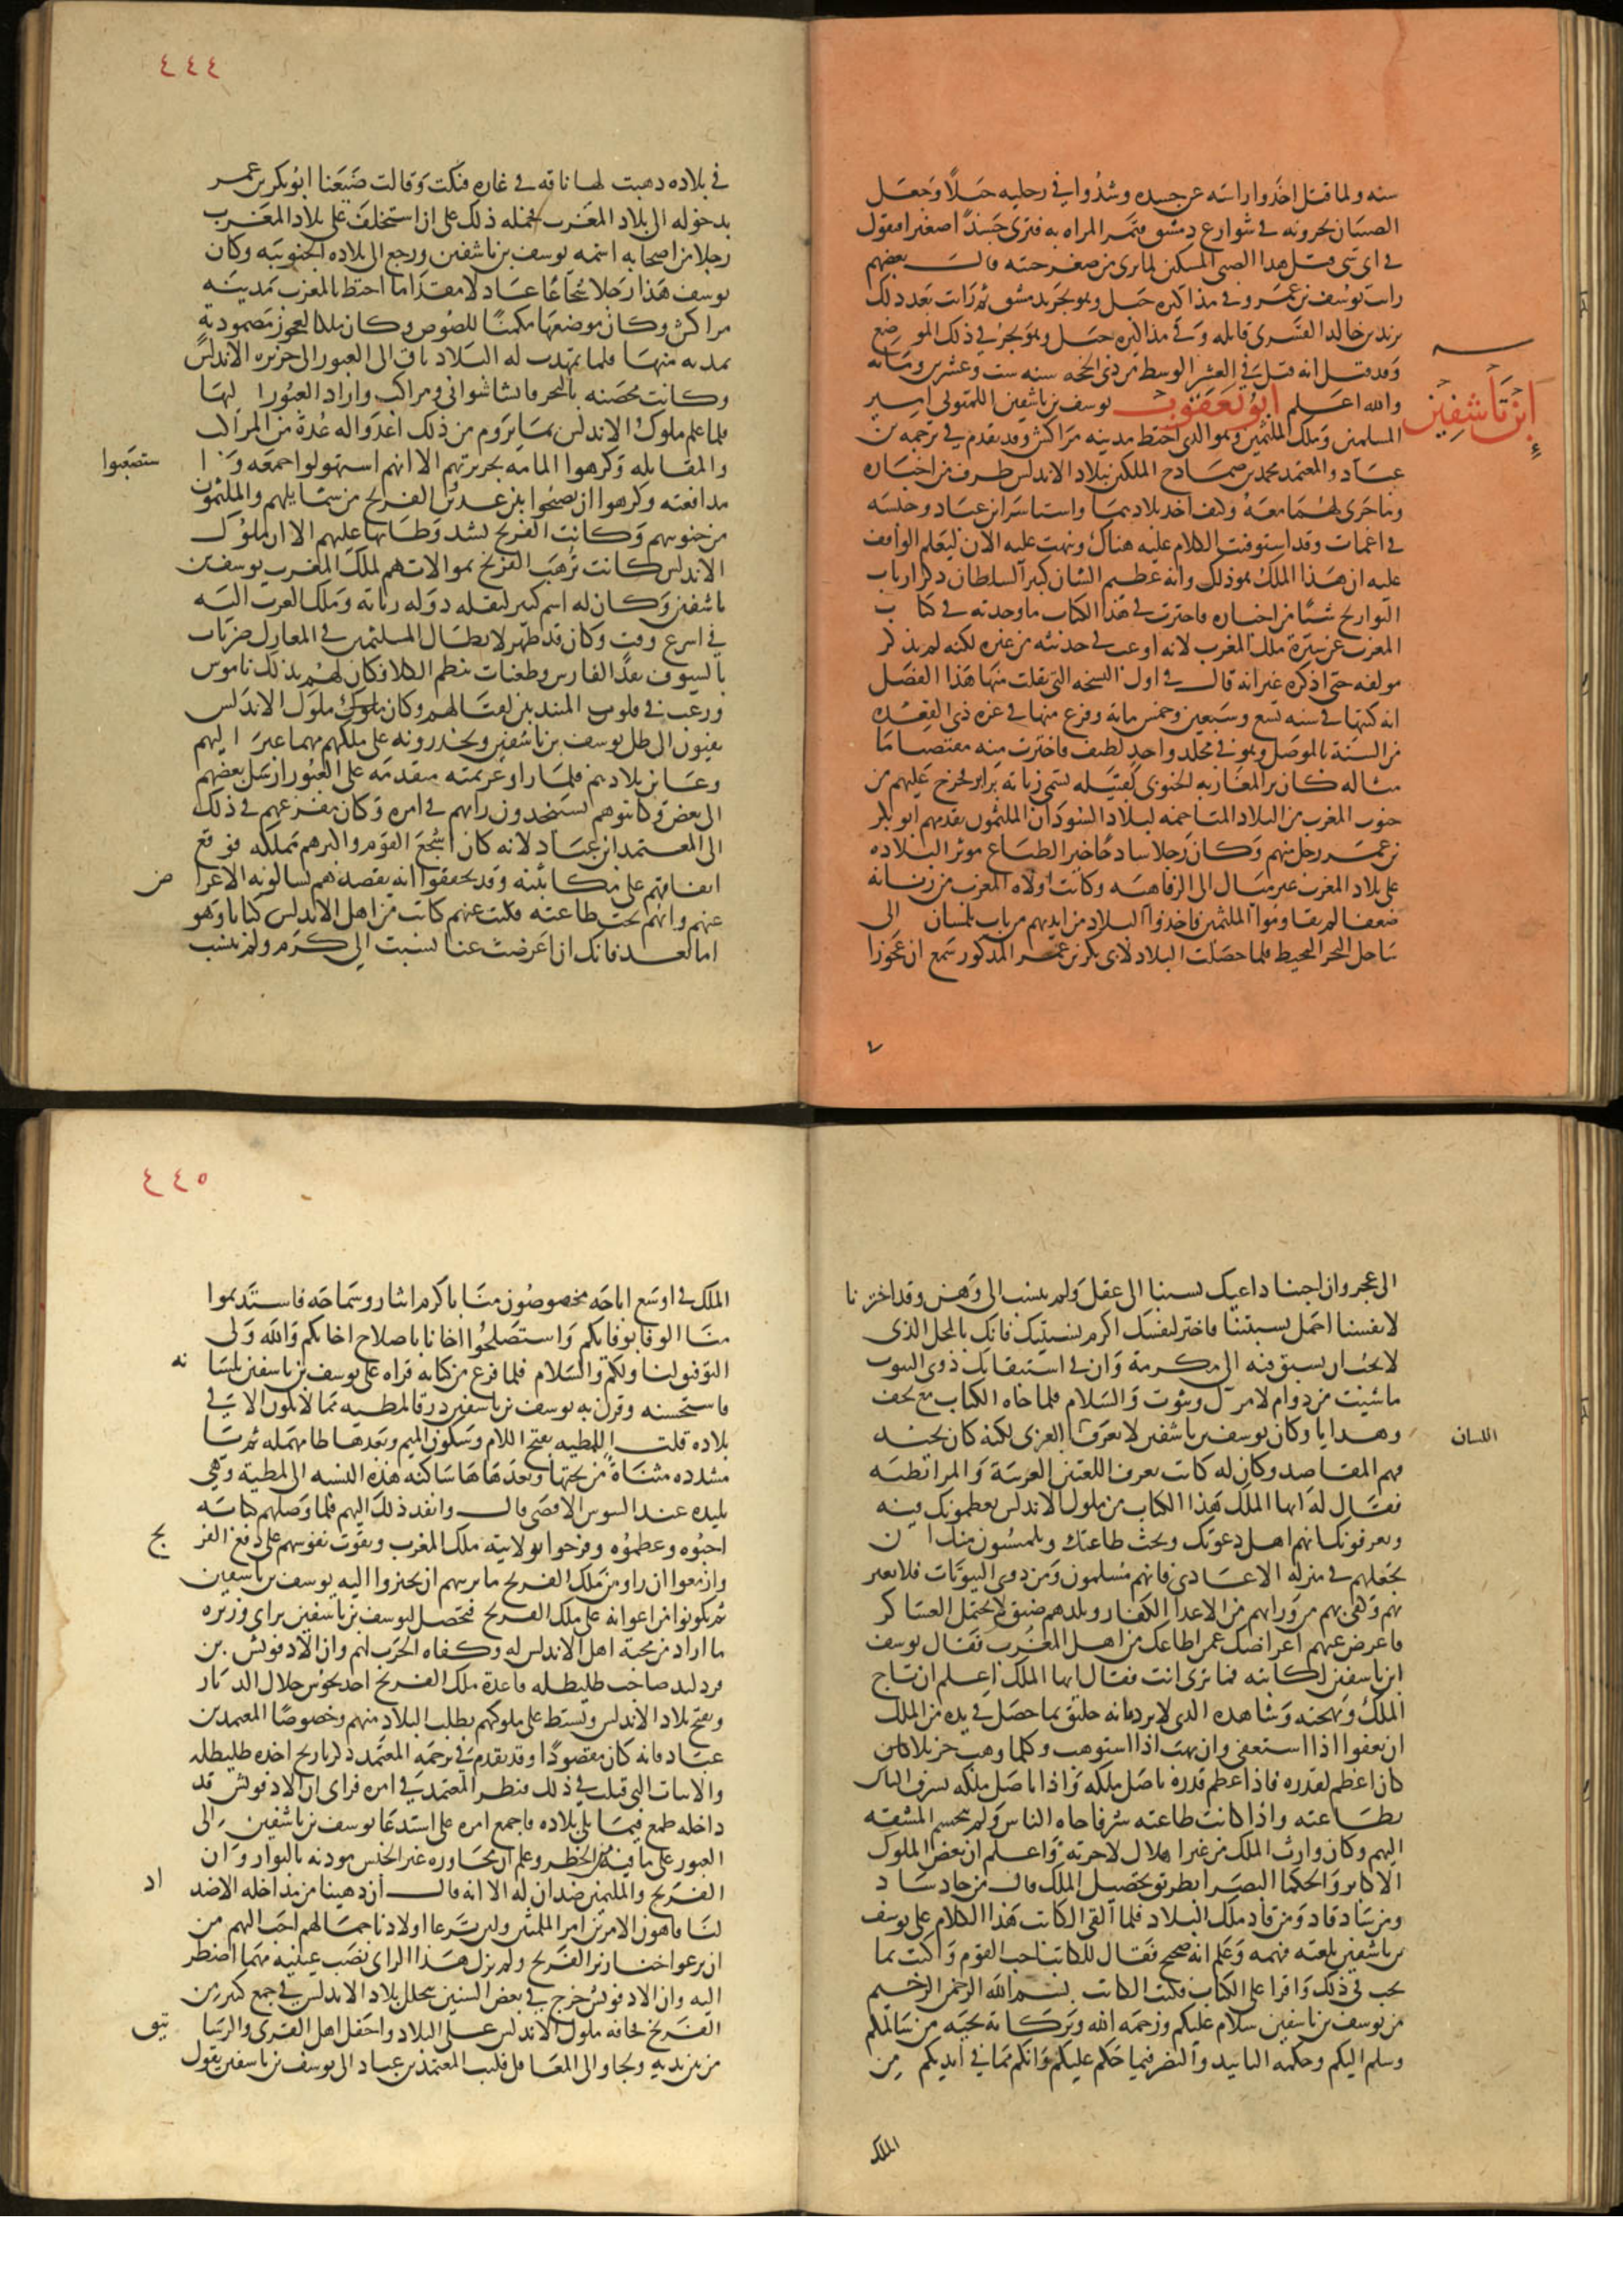 سنه ولما قتل اخذوا راسه عن جسده وشدوا في رجليه حبلا وجعل
الصبيان يجرونه في شوارع دمشق فتمر المراه به فترى جسدا صغيرا فتقول
في اي شي قتل هذا الصبي المسكين لما يرى من صغر جثته قال بعضهم
رايت يوسف بن عمر وفي مذاكيره حبل وهو يجر بدمشق ثم رايت بعد ذلك
يزيد بن خالد القسري قاتله وفي مذاكيره حبل وهو يجر في ذلك الموضع
وقد قيل انه قتل في العشر الوسط من ذي الحجه سنه ست وعشرين ومائه
والله اعلم ابو يعقوب يوسف بن تاشفين اللمتوني امير
ابن تاشفين
المسلمين وملك الملثمين وهو الذي اختط مدينه مراكش وقد تقدم في ترجمه بن
عباد والمعتمد محمد بن صمادح الملكين ببلاد الاندلس طرف من اخباره
وما جرى لهما معه وكيف اخذ بلادهما واستاسر ابن عباد وحبسه
في اغمات وقد استوفيت الكلام عليه هناك ونبهت عليه الان ليعلم الواقف
عليه ان هذا الملك هو ذلك وانه عظيم الشان كبير السلطان ذكر ارباب
التواريخ شيئا من اخباره فاخترت في هذا الكتاب ما وجدته في كتاب
المغرب عن سيرة ملك المغرب لانه اوعب في حديثه من غيره لكنه لم يذكر
مولفه حتى اذكره غير انه قال في اول النسخه التي نقلت منها هذا الفصل
انه كتبها في سنه تسع وسبعين وخمس مائه وفرغ منها في غره ذي القعده
من السنة بالموصل وهو في مجلد واحد لطيف فاخترت منه مقتضبا ما
مثاله كان بر المغاربه الجنوبي لقبيله تسمى زناته برابر فخرج عليهم من
جنوب المغرب من البلاد المتاخمه لبلاد السودان الملثمون يقدمهم ابو بكر
بن عمر رجل منهم وكان رجلا ساذجا خير الطباع موثرا لبلاده
على بلاد المغرب غير ميال الى الرفاهيه وكانت ولاه المغرب من زناته
ضعفا لم يقاوموا الملثمين فاخذوا البلاد من ايديهم من باب تلمسان الى
ساحل البحر المحيط فلما حصلت البلاد لابي بكر بن عمر المذكور سمع ان عجوزا
٤٤٤
في بلاده ذهبت لها ناقه في غاره فبكت وقالت ضيعنا ابو بكر بن عمر
بدخوله الى بلاد المغرب فحمله ذلك على ان استخلف على بلاد المغرب
رجلا من اصحابه اسمه يوسف بن تاشفين ورجع الى بلاده الجنوبيه وكان
يوسف هذا رجلا شجاعا عادلا مقداما اختط بالمغرب مدينه
مراكش وكان موضعها مكمنا للصوص وكان ملكا لعجوز مصموديه
فلما تمهدت له البلاد تاق الى العبور الى جزيره الاندلس
وكانت محصنه بالبحر فانشا شواني ومراكب واراد العبور اليها
فلما علم ملوك الاندلس بما يروم من ذلك اعدوا له عدة من المراكب
والمقاتله وكرهوا المامه بجزيرتهم الا انهم استهولوا جمعه و
ستصعبوا
مدافعته وكرهوا ان يصبحوا بين عدوين الفرنج من شمايلهم والملثمون
من جنوبهم وكانت الفرنج تشد وطاتها عليهم الا ان ملوك
الاندلس كانت ترهب الفرنج بموالاتهم لملك المغرب يوسف بن
تاشفين وكان له اسم كبير لنقله دوله زناته وملك الغرب اليه
في اسرع وقت وكان قد ظهر لابطال الملثمين في المعارك ضربات
بالسيوف تقد الفارس وطعنات تنظم الكلا فكان لهم بذلك ناموس
ورعب في قلوب المنتدبين لقتالهم وكان ملوك الاندلس
يفيئون الى ظل يوسف بن تاشفين ويحذرونه على ملكهم مهما عبر اليهم
وعاين بلادهم فلما راوا عزيمته متقدمه على العبور ارسل بعضهم
الى بعض وكاتبوهم يستنجدون رايهم في امره وكان مفزعهم في ذلك
الى المعتمد ابن عباد لانه كان اشجع القوم واكبرهم مملكه فوقع
اتفاقهم على مكاتبته وقد تحققوا انه يقصدهم يسالونه الاعرا
ض
عنهم وانهم تحت طاعته فكتب عنهم كاتب من اهل الاندلس كتابا وهو
اما بعد فانك ان اعرضت عنا نسبت الى كرم ولم تنسب
الى عجز وان اجبنا داعيك نسبنا الى عقل ولم ننسب الى وهن وقد اخترنا
لانفسنا اجمل نسبتينا فاختر لنفسك اكرم نسبتيك فانك بالمحل الذي
لا يجب ان يسبق فيه الى مكرمة وان في استبقايك ذوي البيوت
ما شيت من دوام لامرك وثبوت والسلام فلما جاه الكتاب مع تحف
وهدايا وكان يوسف بن تاشفين لا يعرف العربي لكنه كان يجيد
اللسان
فهم المقاصد وكان له كاتب يعرف اللغتين العربية والمرابطيه
فقال له ايها الملك هذا الكتاب من ملوك الاندلس يعظمونك فيه
ويعرفونك انهم اهل دعوتك وتحت طاعتك ويلتمسون منك ان
تجعلهم في منزله الاعادي فانهم مسلمون ومن ذوي البيوتات فلا تغير
بهم وكفى بهم من ورائهم من الاعدا الكفار وبلدهم ضيق لا يحتمل العساكر
فاعرض عنهم اعراضك عمن اطاعك من اهل المغرب فقال يوسف
ابن تاشفين لكاتبه فما ترى انت فقال ايها الملك اعلم ان تاج
الملك وبهجته وشاهده الذي لا يرد فانه خليق بما حصل في يده من الملك
ان يعفوا اذا استعفي وان يهب اذا استوهب وكلما وهب جزيلا
كان اعظم لقدره فاذا عظم قدره تاصل ملكه واذا تاصل ملكه تشرف الناس
بطاعته واذا كانت طاعته شرفا جاه الناس ولم يتجشم المشقه
اليهم وكان وارث الملك من غير اهلاك لاخرته واعلم ان بعض الملوك
الاكابر والحكما البصرا بطريق تحصيل الملك قال من جاد ساد
ومن ساد قاد ومن قاد ملك البلاد فلما القى الكاتب هذا الكلام على يوسف
بن تاشفين بلغته فهمه وعلم انه صحيح فقال للكاتب اجب القوم واكتب بما
يجب في ذلك واقرا علي الكتاب فكتب الكاتب بسم الله الرحمن الرحيم
من يوسف بن تاشفين سلام عليكم ورحمه الله وبركاته تحيه من سالمكم
وسلم اليكم وحكمه التاييد والنصر فيما حكم عليكم وانكم مما في ايديكم من
الملك
٤٤٥
الملك في اوسع اباحه مخصوصون منا باكرم ايثار وسماحه فاستديموا
منا الوفا بوفايكم واستصلحوا اخانا باصلاح اخايكم والله ولي
التوفيق لنا ولكم والسلام فلما فرغ من كتابه قراه على يوسف بن تاشفين بلسا
نه
فاستحسنه وقرن به يوسف بن تاشفين درقا لمطيه مما لا يكون الا في
بلاده قلت اللمطيه بفتح اللام وسكون الميم وبعدها طا مهمله ثم يا
مشدده مثناة من تحتها وبعدها ها ساكنه هذه النسبه الى لمطة وهي
بليده عند السوس الاقصى قال وانفذ ذلك اليهم فلما وصلهم كتابه
احبوه وعظموه وفرحوا بولايته ملك المغرب وتقوت نفوسهم على دفع الفر
نج
وازمعوا ان راوا من ملك الفرنج ما يريبهم ان يجيزوا اليه يوسف بن تاشفين
ثم يكونوا من اعوانه على ملك الفرنج فتحصل ليوسف بن تاشفين براي وزيره
ما اراد من محبة اهل الاندلس له وكفاه الحرب لهم وان الادفونش بن
فردلند صاحب طليطله قاعدة ملك الفرنج اخذ يجوس خلال الديار
ويفتح بلاد الاندلس ويشتط على ملوكهم بطلب البلاد منهم وخصوصا المعتمد بن
عباد فانه كان مقصودا وقد تقدم في ترجمه المعتمد ذكر تاريخ اخذه طليطله
والابيات التي قيلت في ذلك فنظر المعتمد في امره فراى ان الادفونش قد
داخله طمع فيما يلي بلاده فاجمع امره على استدعا يوسف بن تاشفين الى
العبور على ما فيه من الخطر وعلم ان مجاوره غير الجنس موذنه بالبوار وان
الفرنج والملثمين ضدان له الا انه قال ان دهينا من مداخله الاضد
اد
لنا فاهون الامرين امر الملثمين ولان ترعا اولادنا جمالهم احب اليهم من
ان يرعوا خنازير الفرنج ولم يزل هذا الراي نصب عينيه مهما اضطر
اليه وان الادفونش خرج في بعض السنين يتخلل بلاد الاندلس في جمع كثير من
الفرنج فخافه ملوك الاندلس على البلاد واجفل اهل القرى والرسا
تيق
من بين يديه ولجاوا الى المعاقل فكتب المعتمد بن عباد الى يوسف بن تاشفين يقول